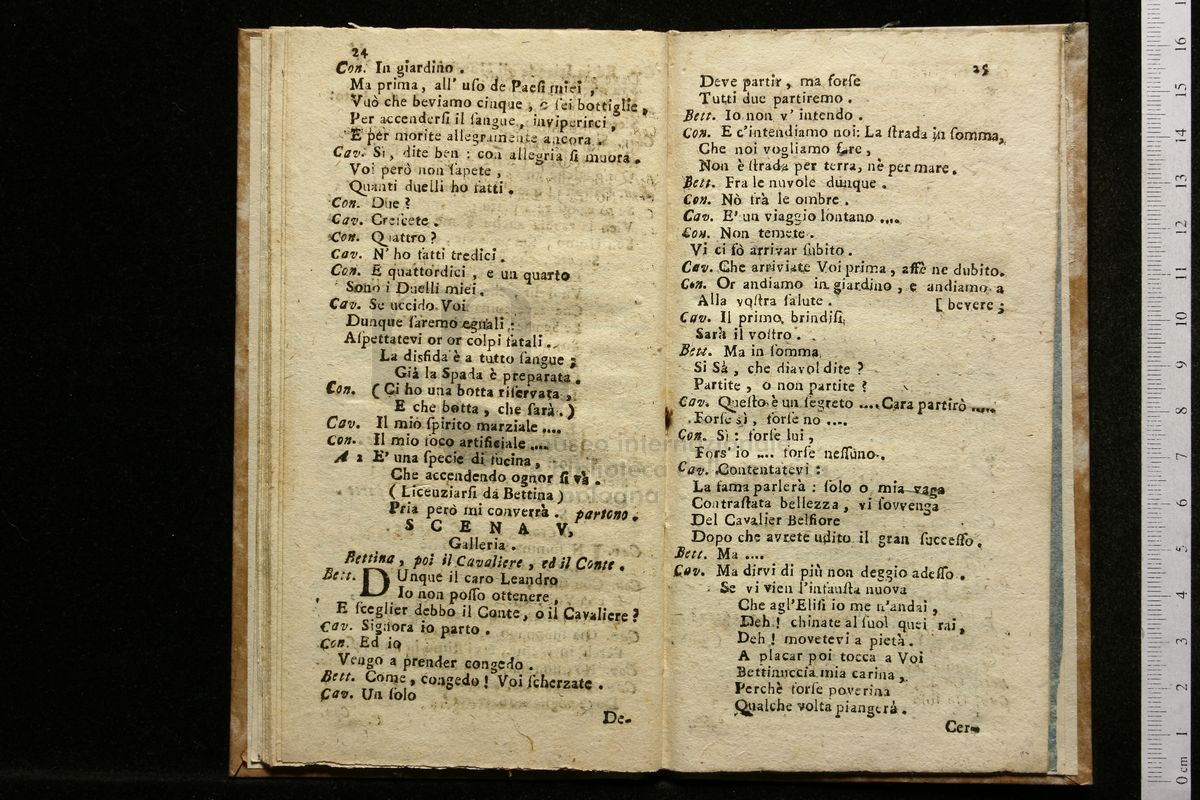 24
Con. In giardino.
Ma prima, all' uſo de Paeſi miei,
Vuò che beviamo cinque, o ſei bottiglie,
Per accenderſi il ſangue, inviperirci,
E per morire allegramente ancora.
Cav. Sì, dite ben: con allegria ſi muora.
Voi però non ſapete,
Quanti duelli ho fatti.
Con. Due?
Cav. Creſcete.
Con. Quattro?
Cav. N' ho fatti tredici.
Con. E quattordici, e un quarto
Sono i Duelli miei.
Cav. Se uccido Voi
Dunque ſaremo eguali:
Aſpettatevi or or colpi fatali.
La disfida è a tutto ſangue;
Già la Spada è preparata.
Con. (Ci ho una botta riſervata,
E che botta, che ſarà.)
Cav. Il mio ſpirito marziale ....
Con. Il mio foco artificiale ....
A 2 E' una ſpecie di fucina,
Che accendendo ognor ſi và.
(Licenziarſi da Bettina)
Pria però mi converrà. partono.
SCENA V,
Galleria.
Bettina, poi il Cavaliere, ed il Conte.
Bett. DUnque il caro Leandro
Io non poſſo ottenere,
E ſceglier debbo il Conte, o il Cavaliere?
Cav. Signora io parto.
Con. Ed io
Vengo a prender congedo.
Bett. Come, congedo! Voi ſcherzate.
Cav. Un ſolo
De-
25
Deve partir, ma forſe
Tutti due partiremo.
Bett. Io non v' intendo.
Con. E c'intendiamo noi: La ſtrada in ſomma,
Che noi vogliamo fare,
Non è ſtrada per terra, nè per mare.
Bett. Fra le nuvole dunque.
Con. Nò frà le ombre.
Cav. E' un viaggio lontano ....
Con. Non temete.
Vi ci fò arrivar ſubito.
Cav. Che arriviate Voi prima, affè ne dubito.
Con. Or andiamo in giardino, e andiamo a
Alla voſtra ſalute. [bevere;
Cav. Il primo brindiſi
Sarà il voſtro.
Bett. Ma in ſomma
Si Sà, che diavol dite?
Partite, o non partite?
Cav. Queſto è un ſegreto .... Cara partirò ....
Forſe sì, forſe no ....
Con. Sì: forſe lui,
Forſ' io .... forſe neſſuno.
Cav. Contentatevi:
La fama parlerà: ſolo o mia vaga
Contraſtata bellezza, vi ſovvenga
Del Cavalier Belfiore
Dopo che avrete udito il gran ſucceſſo.
Bett. Ma ....
Cav. Ma dirvi di più non deggio adeſſo.
Se vi vien l'infauſta nuova
Che agl'Eliſi io me n'andai,
Deh! chinate al ſuol quei rai,
Deh! movetevi a pietà.
A placar poi tocca a Voi
Bettinuccia mia carina,
Perchè forſe poverina
Qualche volta piangerà.
Cer-